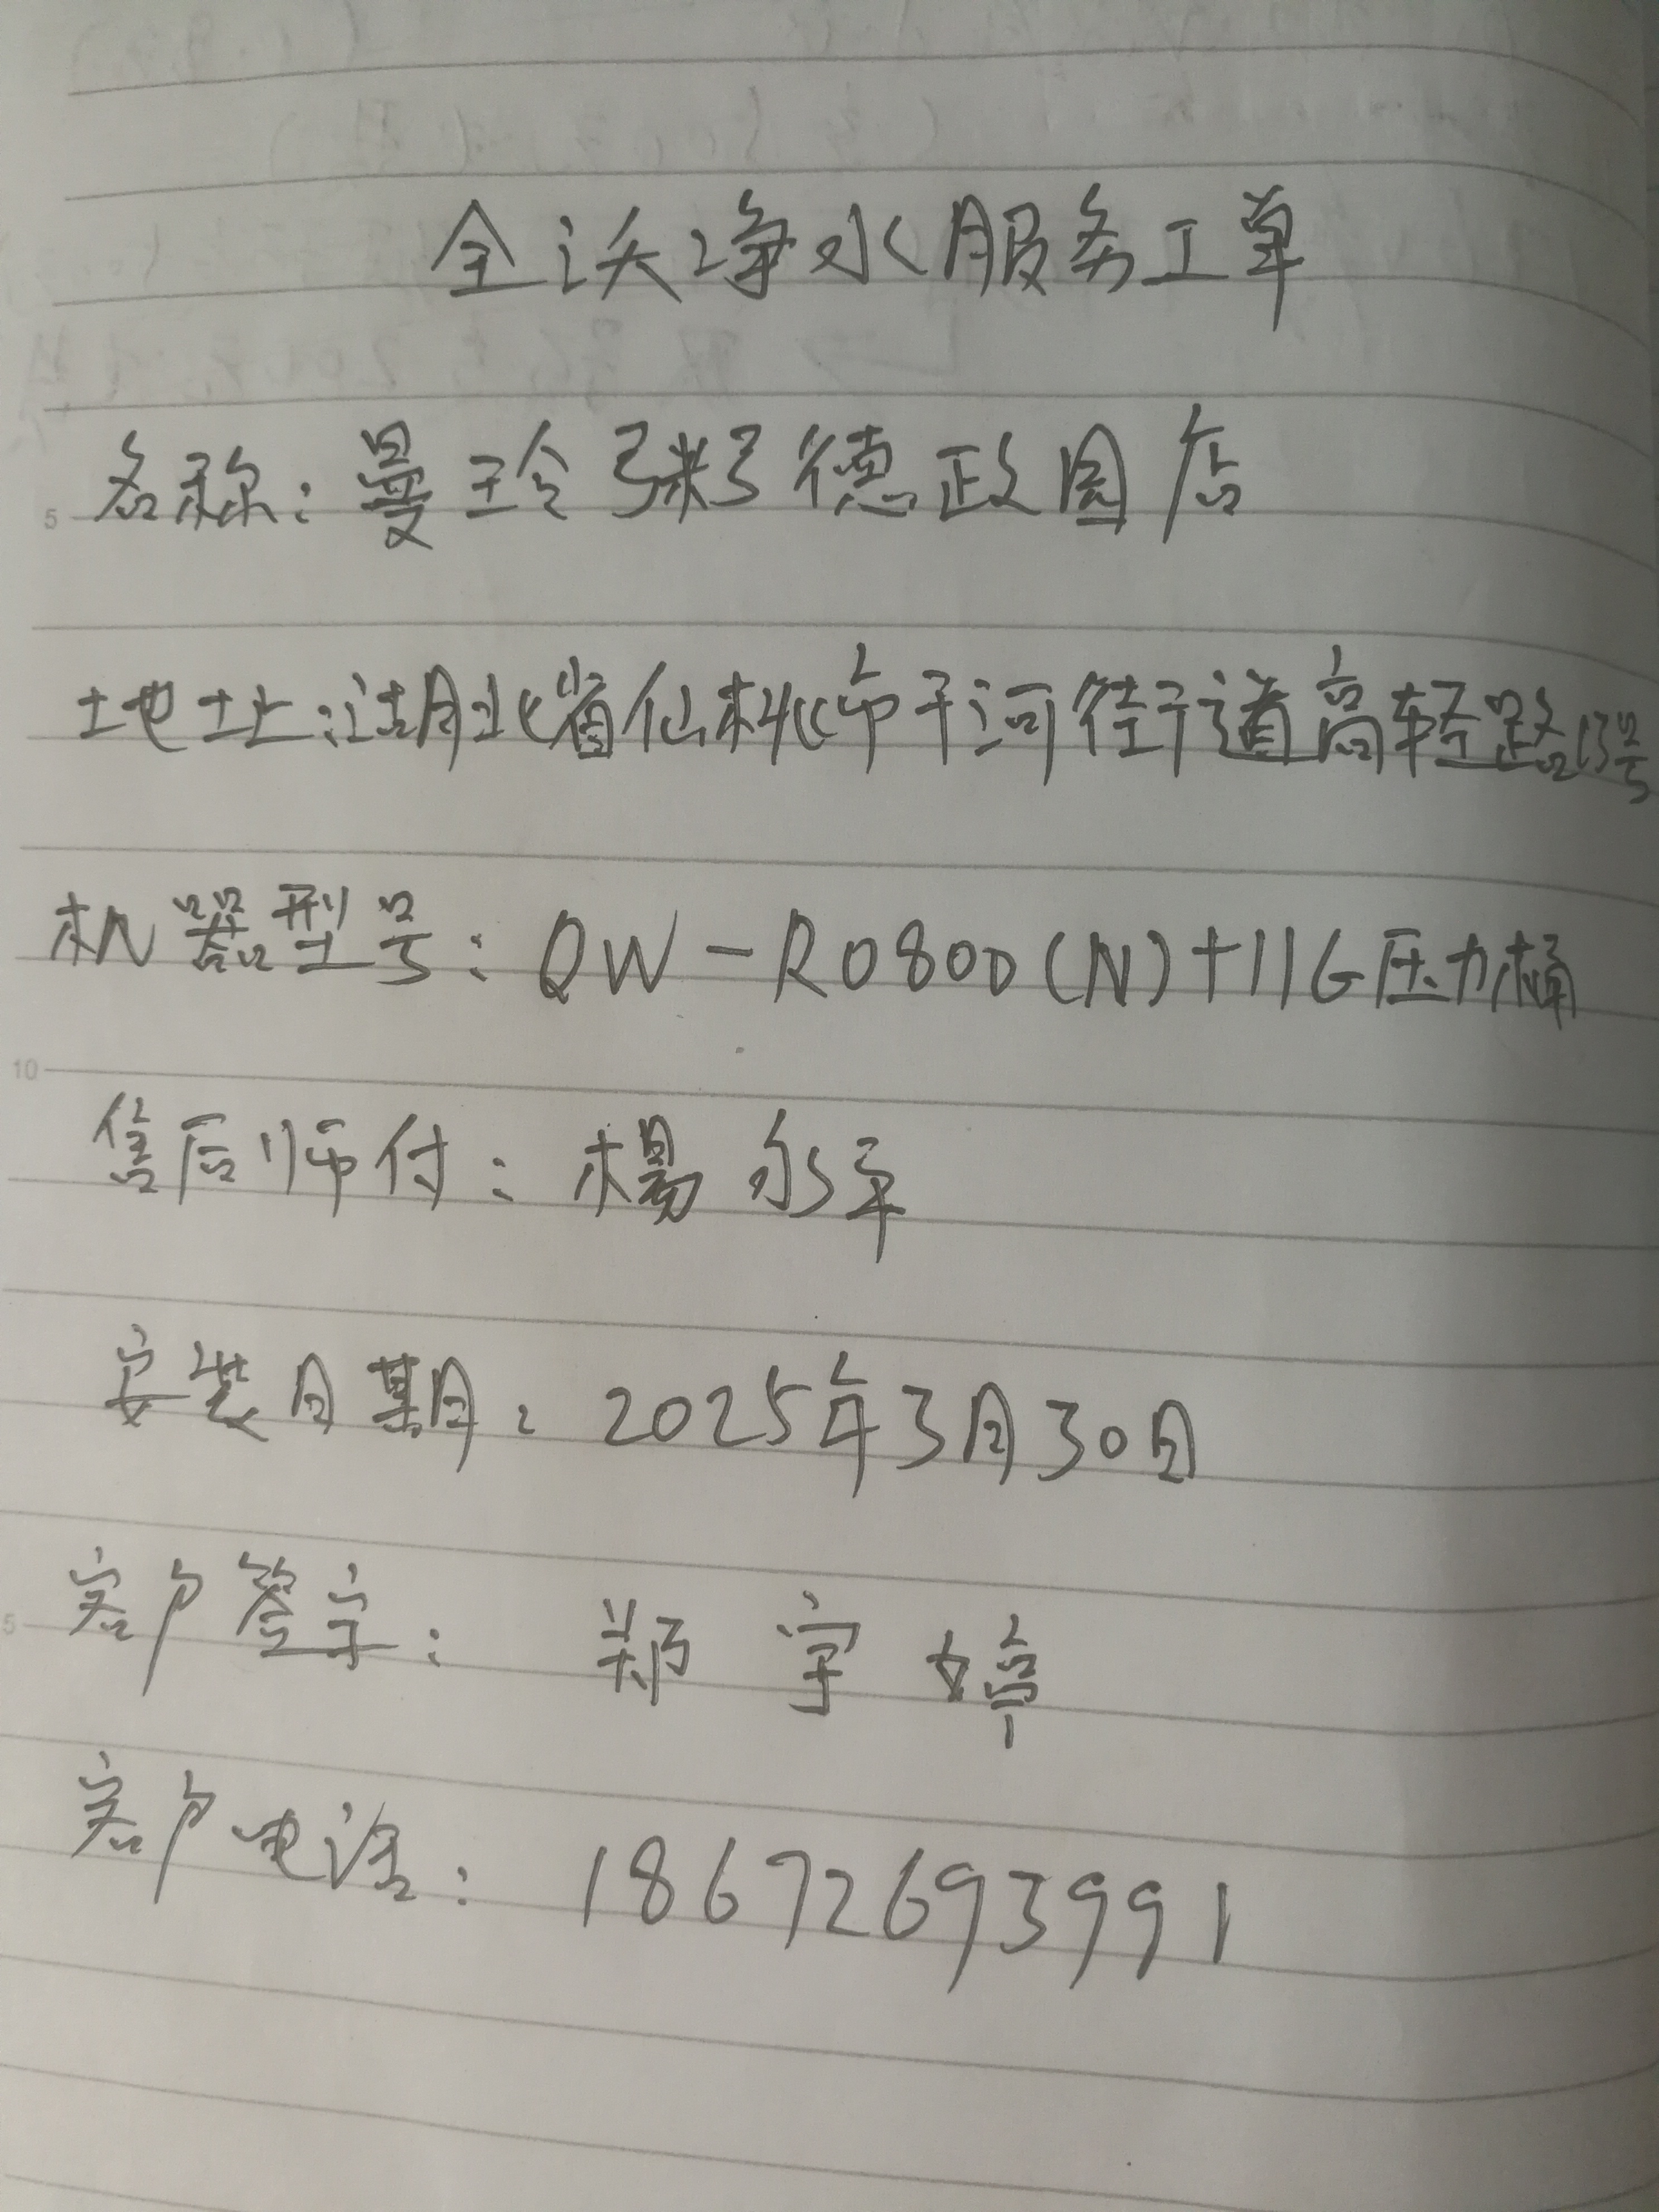 全沃净水服务工单
名称：曼玲粥德政园店
地址：湖北省仙桃市干河街道高轻路13号
机器型号：QW-RO800(N)+11G压力桶
售后师付：楊永平
安装日期：2025年3月30日
客户签字：郑宇婷
客户电话：18672693991